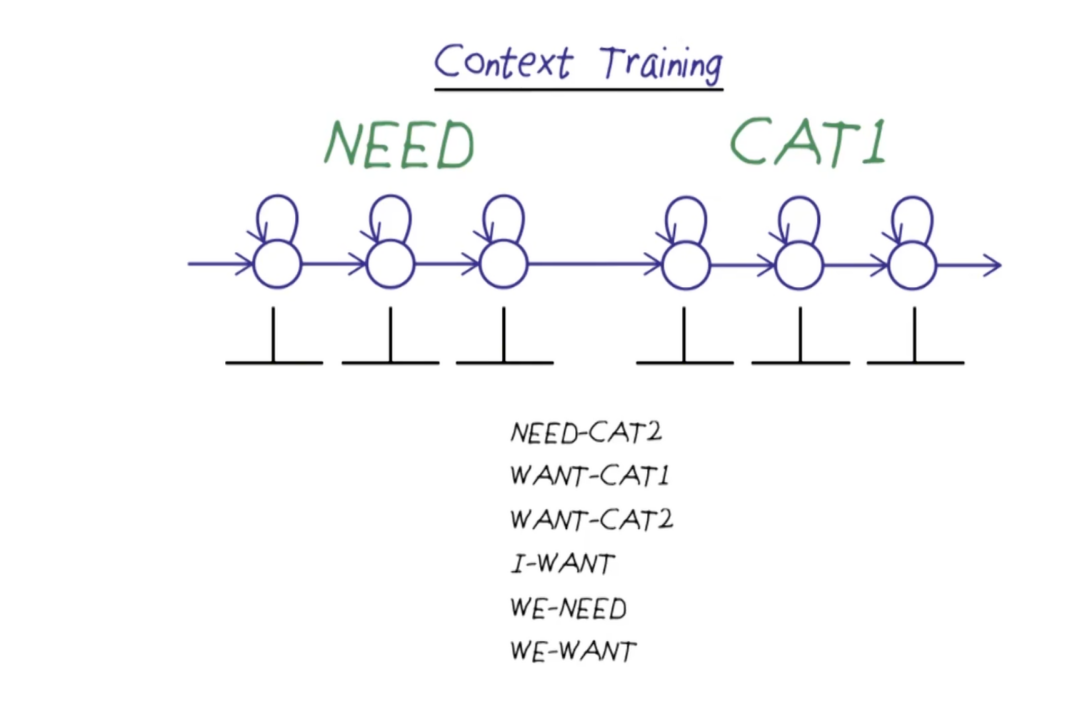 Context Training
NEED CAT1
NEED-CAT2
WANT-CAT1
WANT-CAT2
I-WANT
WE-NEED
WE-WANT